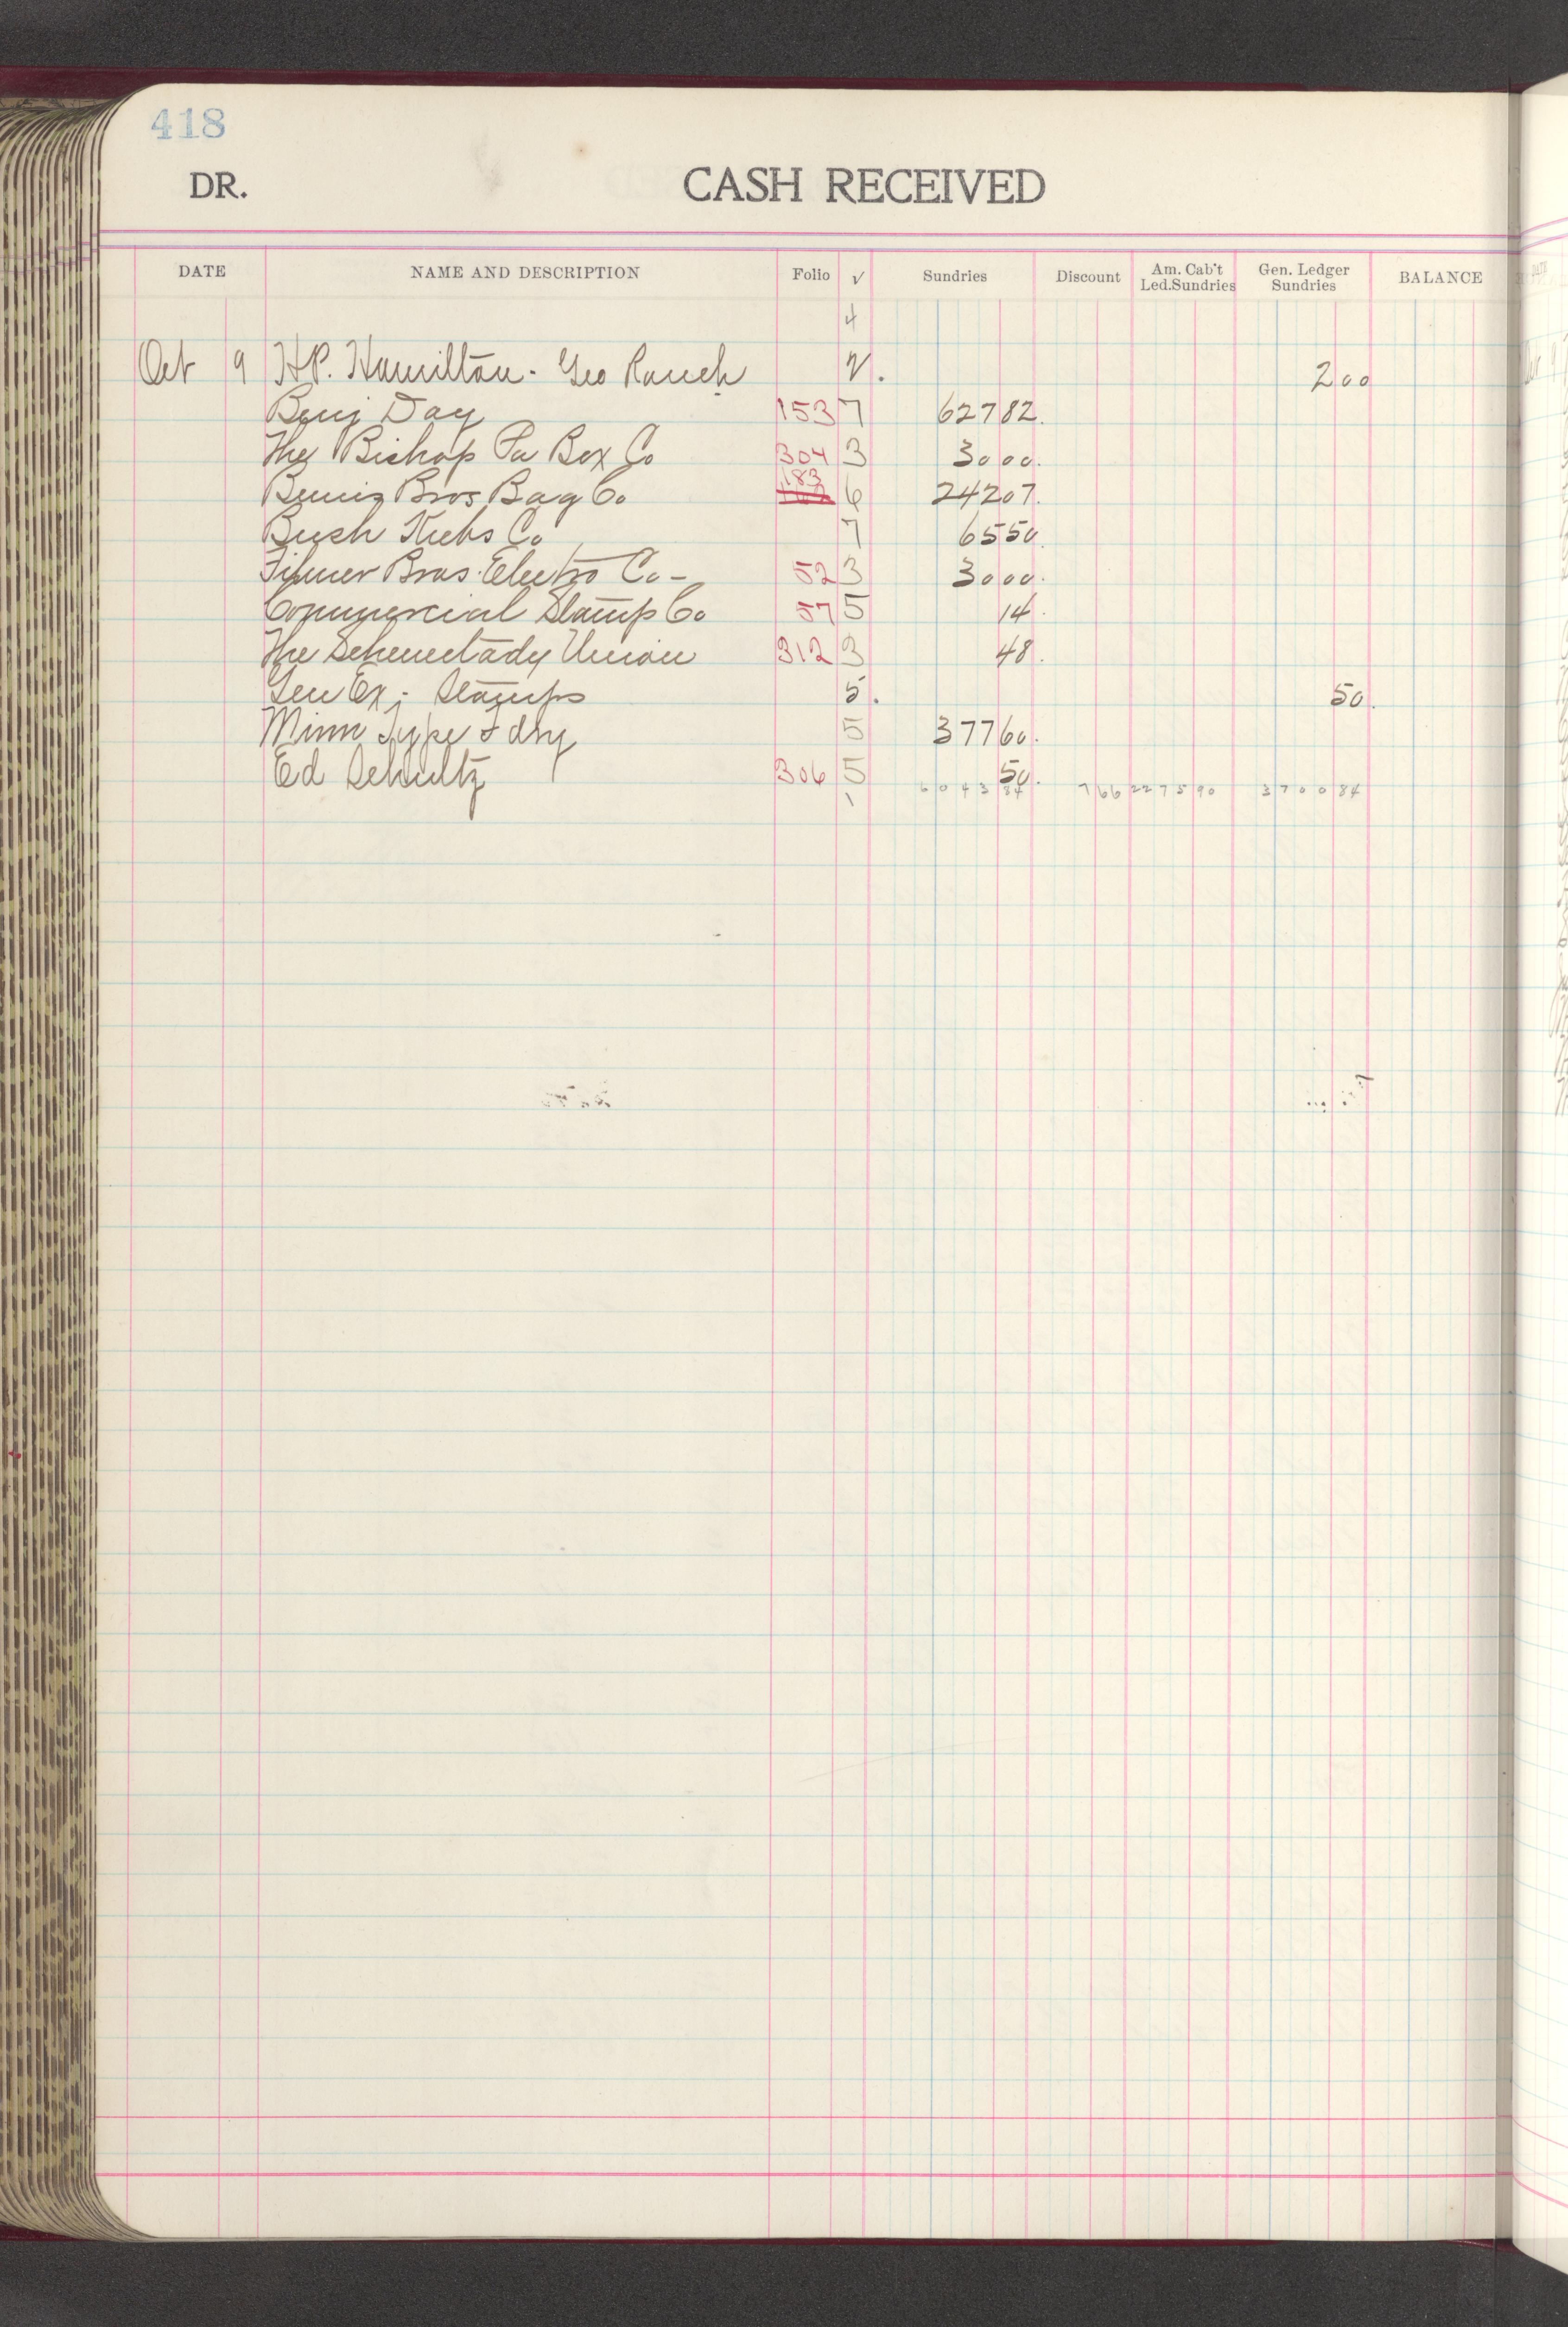 418
DR. CASH RECEIVED
DATE NAME AND DESCRIPTION Folio √ Sundries Discount Am. Cab't Led.Sundries Gen. Ledger Sundries BALANCE
4
Oct 9 H.P. Hamilton - Geo Rauch 2 00
Benj Day 153 7 627 82
The Bishop Pa Box Co 304 3 30 00
Bemis Bros Bag Co 183 6 242 07
Bush Krebs Co 7 65 50
Bros. Electro Co - 52 3 30 00
Commercial Stamp Co 57 5 14
The Schenectady Union 312 3 48
Gen Ex; Stamps 5 50
Minn Type Fdry 5 377 60
Ed Schultz 306 5 50
6043 84 7 66 2275 90 3700 84